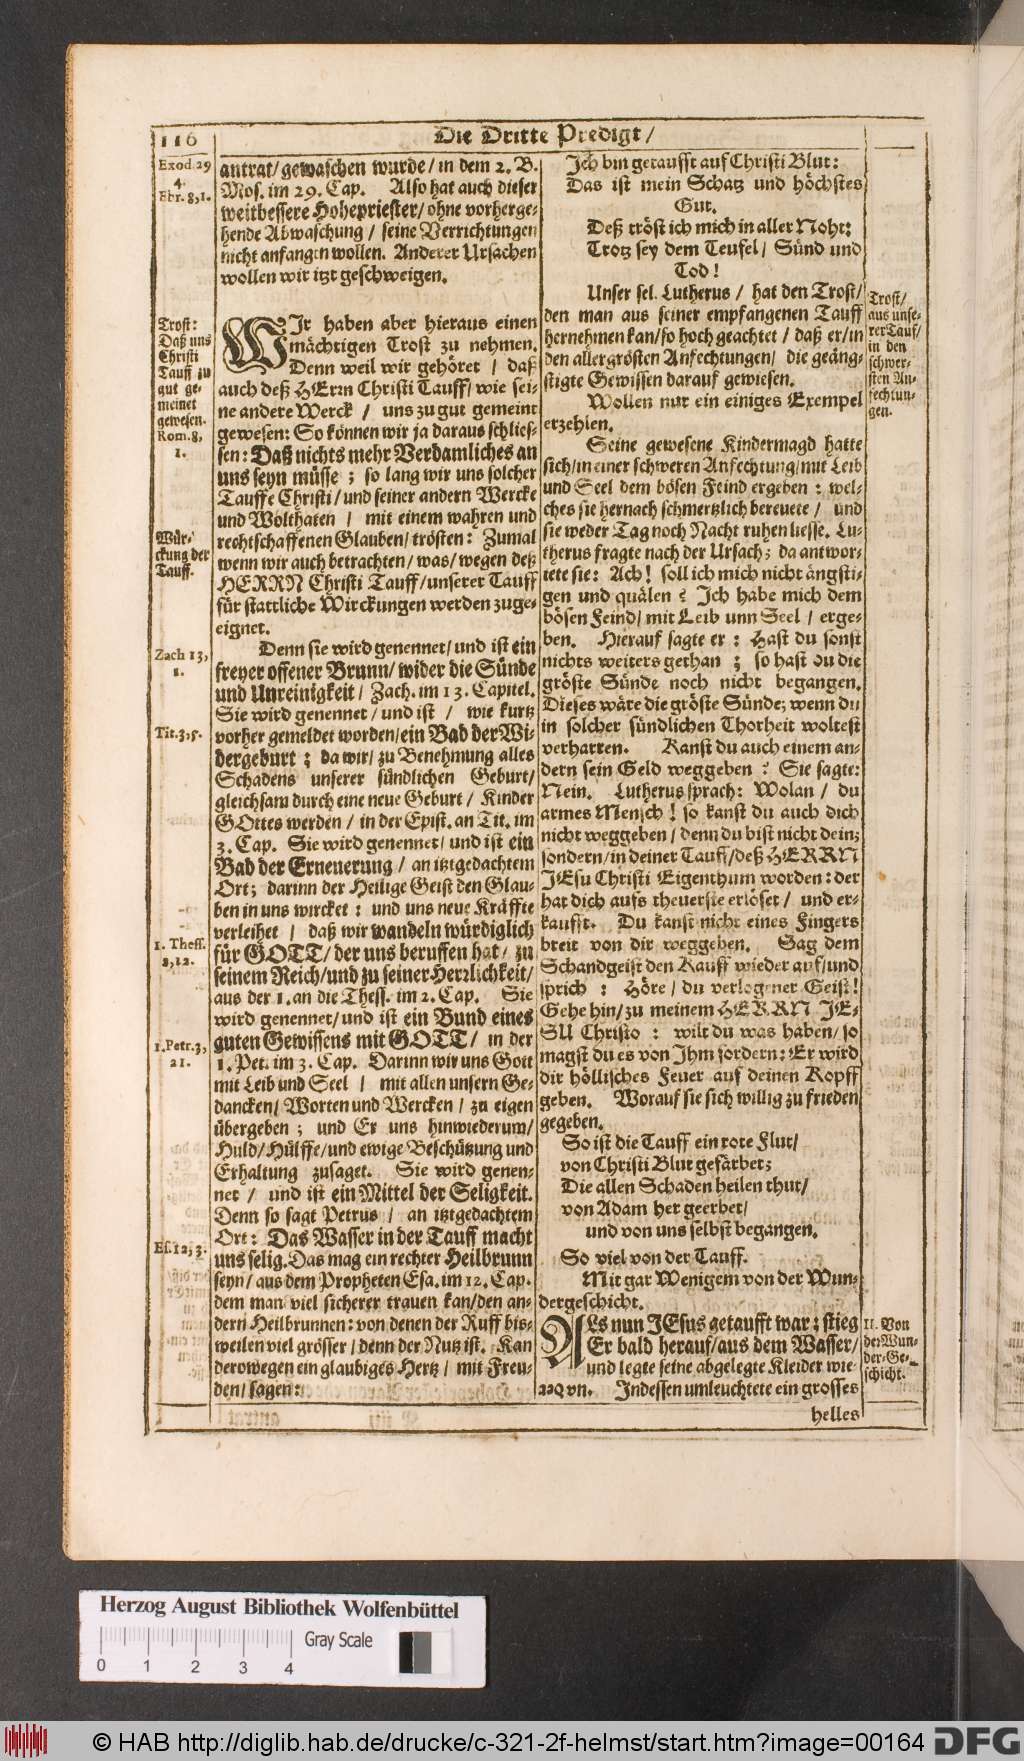 116
Die Dritte Predigt /
Exod. 29
4.
Ebr. 8, 1.
antrat / gewaschen wurde / in dem 2. B.
Mos. im 29. Cap. Also hat auch dieser
weitbessere Hohepriester / ohne vorherge-
hende Abwaschung / seine Verrichtungen
nicht anfangen wollen. Anderer Ursachen
wollen wir itzt geschweigen.
Trost:
Daß uns
Christi
Tauff zu
gut ge-
meinet
gewesen.
Rom. 8,
1.
WIr haben aber hieraus einen
mächtigen Trost zu nehmen.
Denn weil wir gehöret / daß
auch deß HErzn Christi Tauff / wie sei-
ne andere Werck / uns zu gut gemeint
gewesen: So können wir ja daraus schlies-
sen: Daß nichts mehr Verdamliches an
uns seyn müsse ; so lang wir uns solcher
Tauffe Christi / und seiner andern Wercke
und Wolthaten / mit einem wahren und
rechtschaffenen Glauben / trösten: Zumal
wenn wir auch betrachten / was / wegen deß
HERRN Christi Tauff / unserer Tauff
für stattliche Wirckungen werden zuge-
eignet.
Wür-
ckung der
Tauff.
Denn sie wird genennet / und ist ein
freyer offener Brunn / wider die Sünde
und Unreinigkeit / Zach. im 13. Capitel.
Sie wird genennet / und ist / wie kurtz
vorher gemeldet worden / ein Bad der Wi-
dergeburt ; da wir / zu Benehmung alles
Schadens unserer sündlichen Geburt /
gleichsam durch eine neue Geburt / Kinder
GOttes werden / in der Epist. an Tit. im
3. Cap. Sie wird genennet / und ist ein
Bad der Erneuerung / an itztgedachtem
Ort; darinn der Heilige Geist den Glau-
ben in uns wircket : und uns neue Kräffte
verleihet / daß wir wandeln würdiglich
für GOTT / der uns beruffen hat / zu
seinem Reich / und zu seiner Herzlichkeit /
aus der 1. an die Thess. im 2. Cap. Sie
wird genennet / und ist ein Bund eines
guten Gewissens mit GOTT / in der
1. Pet. im 3. Cap. Darinn wir uns Gott
mit Leib und Seel / mit allen unsern Ge-
dancken / Worten und Wercken / zu eigen
übergeben ; und Er uns hinwiederum /
Huld / Hülffe / und ewige Beschützung und
Erhaltung zusaget. Sie wird genen-
net / und ist ein Mittel der Seligkeit.
Denn so sagt Petrus / an itztgedachtem
Ort : Das Wasser in der Tauff macht
uns selig. Das mag ein rechter Heilbrunn
seyn / aus dem Propheten Esa. im 12. Cap.
dem man viel sicherer trauen kan / den an-
dern Heilbrunnen : von denen der Ruff bis-
weilen viel grösser / denn der Nutz ist. Kan
derowegen ein glaubiges Hertz / mit Freu-
den / sagen :
Zach 13,
1.
Tit. 3, 5.
1. Thess.
2, 12.
1. Petr. 3,
21.
Es. 12, 3.
Ich bin getaufft auf Christi Blut:
Das ist mein Schatz und höchstes
Gut.
Deß tröst ich mich in aller Noht:
Trotz sey dem Teufel / Sünd und
Tod !
Unser sel. Lutherus / hat den Trost /
den man aus seiner empfangenen Tauff
hernehmen kan / so hoch geachtet / daß er / in
den allergrösten Anfechtungen / die geäng-
stigte Gewissen darauf gewiesen.
Wollen nur ein einiges Exempel
erzehlen.
Seine gewesene Kindermagd hatte
sich / in einer schweren Anfechtung / mit Leib
und Seel dem bösen Feind ergeben : wel-
ches sie hernach schmertzlich bereuete / und
sie weder Tag noch Nacht ruhen liesse. Lu-
therus fragte nach der Ursach; da antwor-
tete sie: Ach! soll ich mich nicht ängsti-
gen und quälen ? Ich habe mich dem
bösen Feind / mit Leib unn Seel / erge-
ben. Hierauf sagte er : Hast du sonst
nichts weiters gethan ; so hast du die
gröste Sünde noch nicht begangen.
Dieses wäre die gröste Sünde; wenn du
in solcher sündlichen Thorheit woltest
verharren. Kanst du auch einem an-
dern sein Geld weggeben ? Sie sagte:
Nein. Lutherus sprach: Wolan / du
armes Mensch ! so kanst du auch dich
nicht weggeben / denn du bist nicht dein;
sondern / in deiner Tauff / deß HERRN
JEsu Christi Eigenthum worden : der
hat dich aufs theuerste erlöset / und er-
kaufft. Du kanst nicht eines Fingers
breit von dir weggeben. Sag dem
Schandgeist den Kauff wieder auf / und
sprich : Höre / du verlogener Geist!
Gehe hin / zu meinem HERRN JE-
SU Christo : wilt du was haben / so
magst du es von Ihm fordern: Er wird
dir höllisches Feuer auf deinen Kopff
geben. Worauf sie sich willig zu frieden
gegeben.
So ist die Tauff ein rote Flut /
von Christi Blut gefärbet;
Die allen Schaden heilen thut /
von Adam her geerbet /
und von uns selbst begangen.
So viel von der Tauff.
Mit gar Wenigem von der Wun-
dergeschicht.
ALs nun JEsus getaufft war ; stieg
Er bald herauf / aus dem Wasser /
und legte seine abgelegte Kleider wie-
der an. Indessen umleuchtete ein grosses
helles
Trost /
aus unse-
rer Tauf /
in den
schwer-
sten An-
fechtun-
gen.
II. Von
der Wun-
der-Ge-
schicht.
Herzog August Bibliothek Wolfenbüttel
0 1 2 3 4
Gray Scale
© HAB http://diglib.hab.de/drucke/c-321-2f-helmst/start.htm?image=00164
DFG